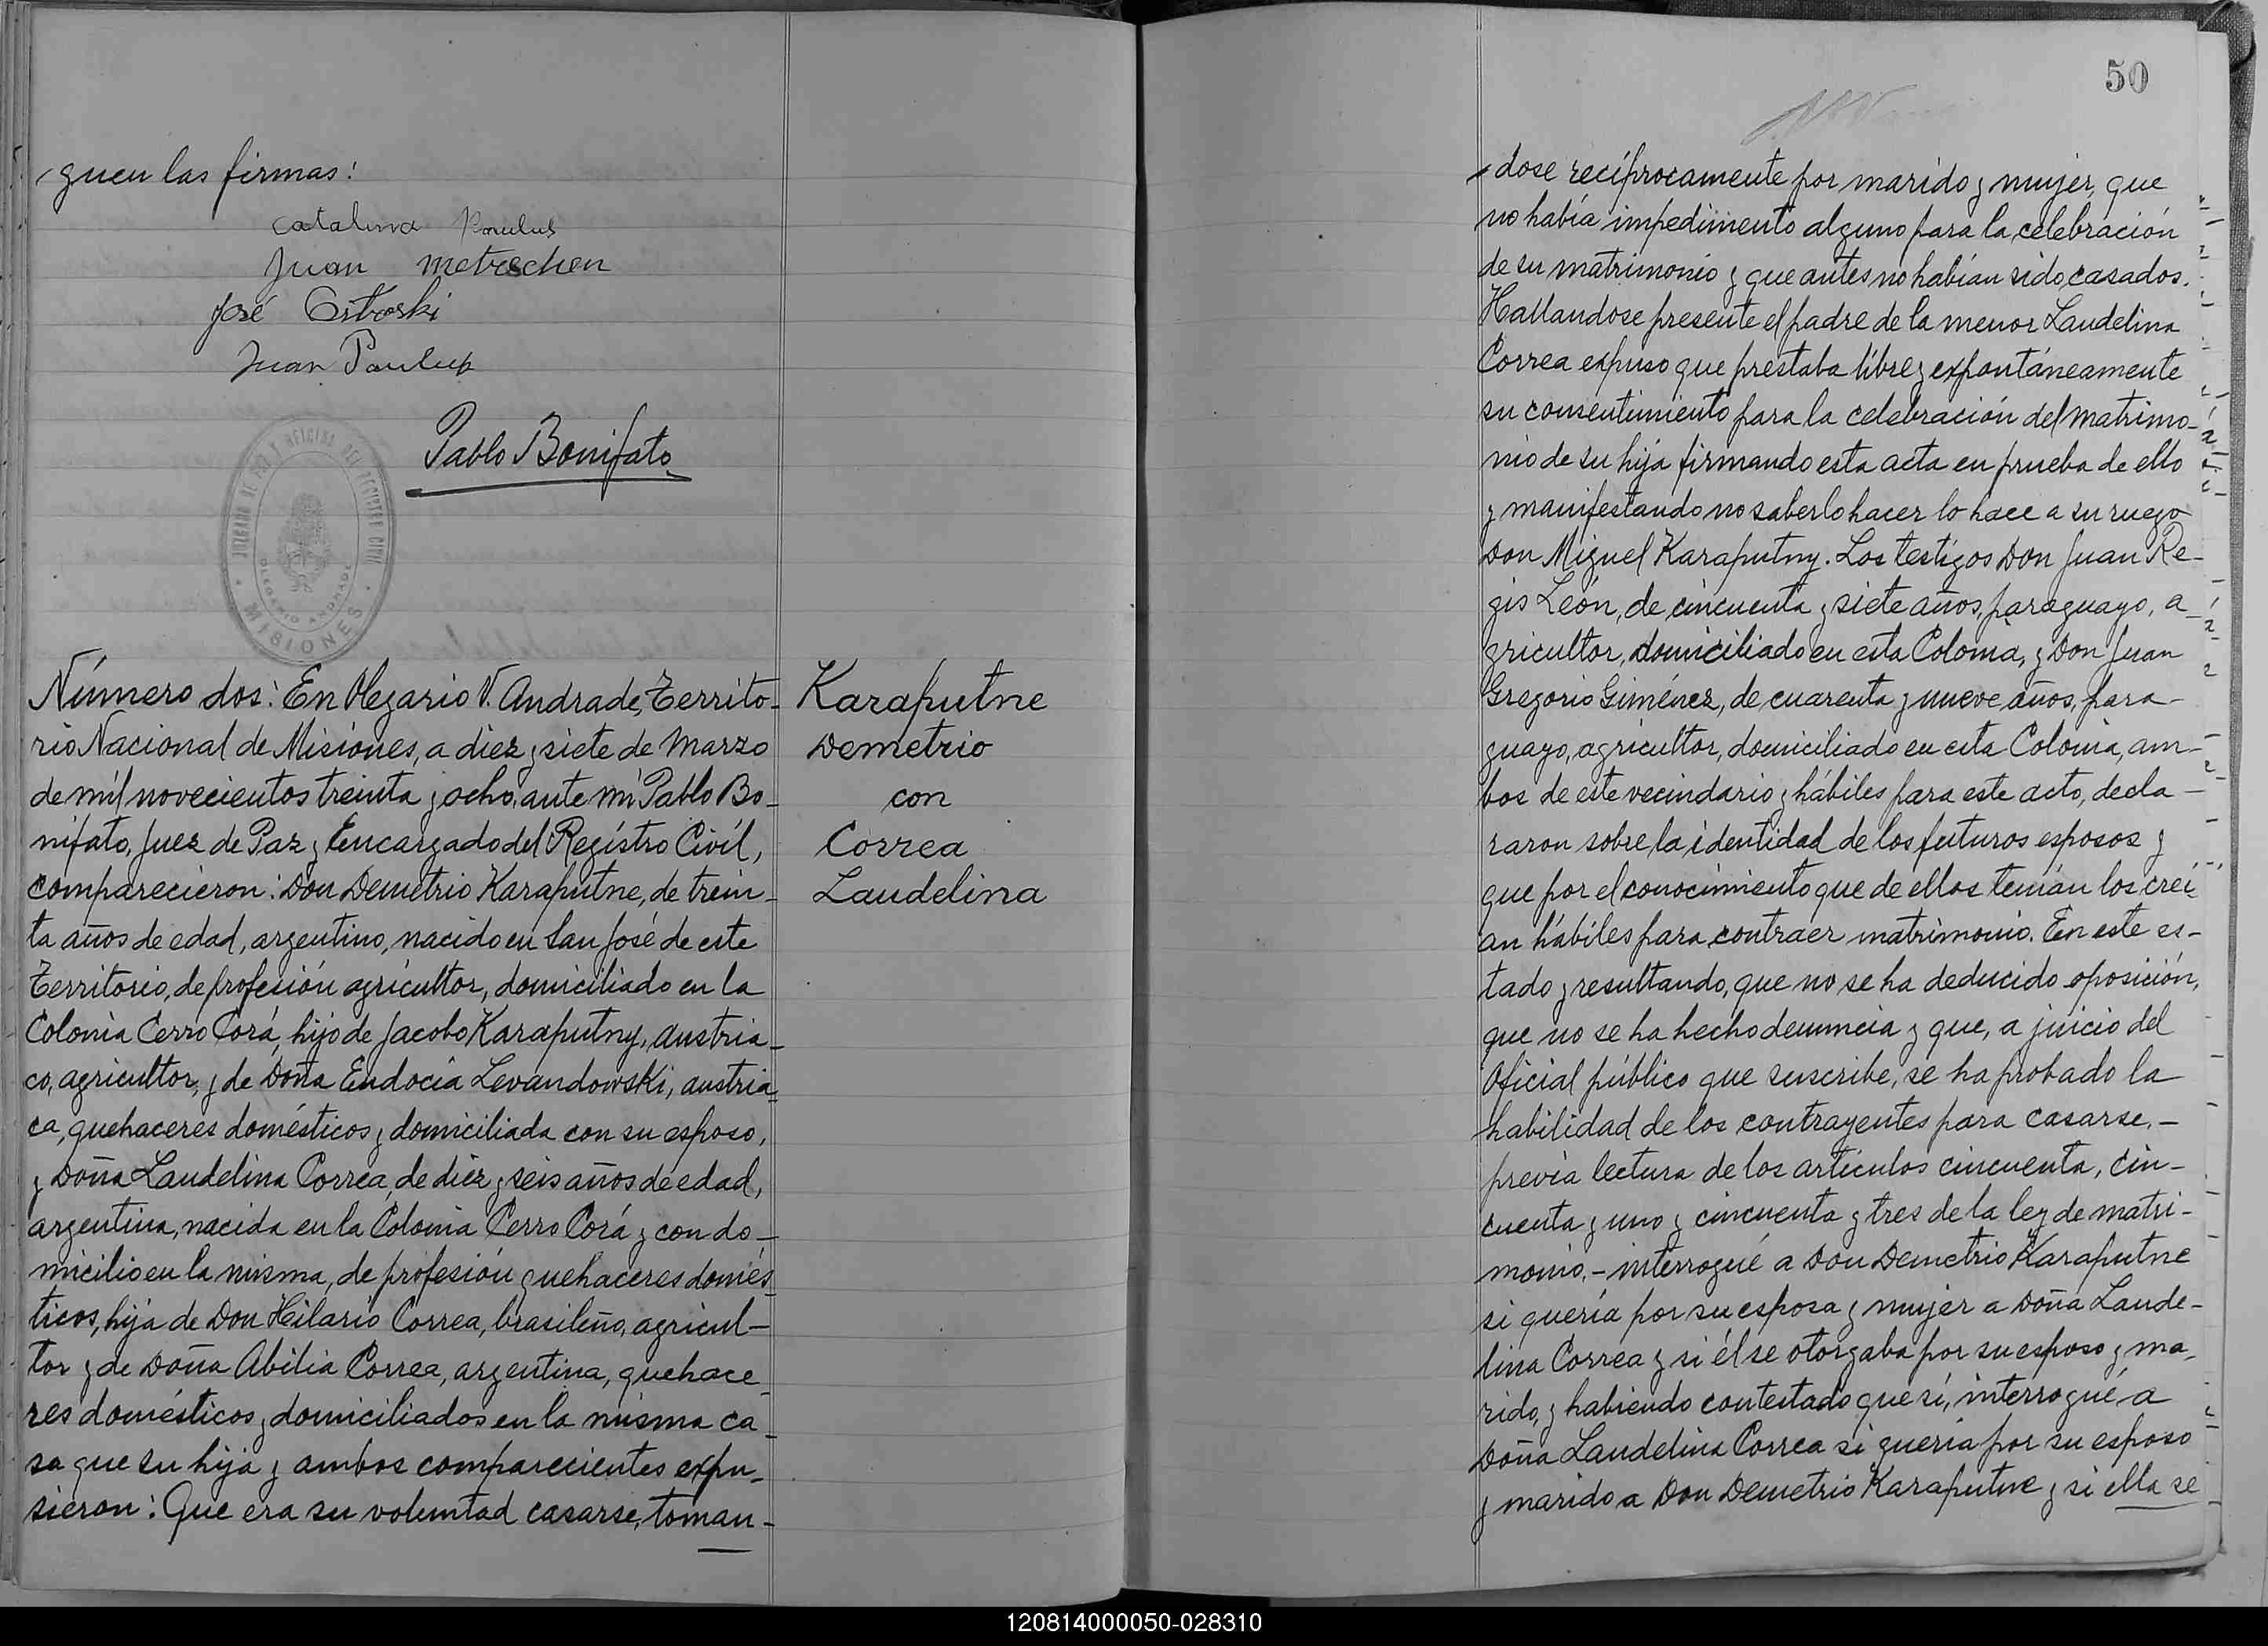 guen las firmas:
Catalina Paulus
Juan Metrechen
José Ostroski
Juan Paulus
Pablo Bonifato
JUZGADO DE PAZ Y OFICINA DEL REGISTRO CIVIL
OLEGARIO ANDRADE
MISIONES
Número dos: En Olegario V. Andrade, Territo-
rio Nacional de Misiones, a diez y siete de Marzo
de mil novecientos treinta y ocho, ante mi Pablo Bo-
nifato, Juez de Paz y Encargado del Registro Civil,
comparecieron: Don Demetrio Karaputne, de trein-
ta años de edad, argentino, nacido en San José de este
Territorio, de profesión agricultor, domiciliado en la
Colonia Cerro Corá, hijo de Jacobo Karaputny, austria-
co, agricultor, y de Doña Eudocia Levandowski, austria-
ca, quehaceres domésticos y domiciliada con su esposo,
y Doña Laudelina Correa, de diez y seis años de edad,
argentina, nacida en la Colonia Cerro Corá y con do-
micilio en la misma, de profesión quehaceres domés-
ticos, hija de Don Hilario Correa, brasileño, agricul-
tor y de Doña Abilia Correa, argentina, quehace-
res domésticos, domiciliados en la misma ca-
sa que su hija y ambos comparecientes expu-
sieron: Que era su voluntad casarse, toman-
Karaputne
Demetrio
con
Correa
Laudelina
50
dose recíprocamente por marido y mujer, que
no había impedimento alguno para la celebración
de su matrimonio y que antes no habían sido casados.
Hallandose presente el padre de la menor Laudelina
Correa expuso que prestaba libre y expontáneamente
su consentimiento para la celebración del matrimo-
nio de su hija firmando esta acta en prueba de ello
y manifestando no saberlo hacer lo hace a su ruego
Don Miguel Karaputny. Los testigos Don Juan Re-
gis León, de cincuenta y siete años, paraguayo, a-
gricultor, domiciliado en esta Colonia, y Don Juan
Gregorio Giménez, de cuarenta y nueve años, para-
guayo, agricultor, domiciliado en esta Colonia, am-
bos de este vecindario y hábiles para este acto, decla-
raron sobre la identidad de los futuros esposos y
que por el conocimiento que de ellos tenían los creí-
an hábiles para contraer matrimonio. En este es-
tado y resultando, que no se ha deducido oposición,
que no se ha hecho denuncia y que, a juicio del
Oficial público que suscribe, se ha probado la
habilidad de los contrayentes para casarse.-
previa lectura de los artículos cincuenta, cin-
cuenta y uno y cincuenta y tres de la ley de matri-
monio.- interrogué a Don Demetrio Karaputne
si quería por su esposa y mujer a Doña Laude-
lina Correa y si él se otorgaba por su esposo y ma-
rido, y habiendo contestado que sí, interrogué a
Doña Laudelina Correa si quería por su esposo
y marido a Don Demetrio Karaputne y si ella se
120814000050-028310